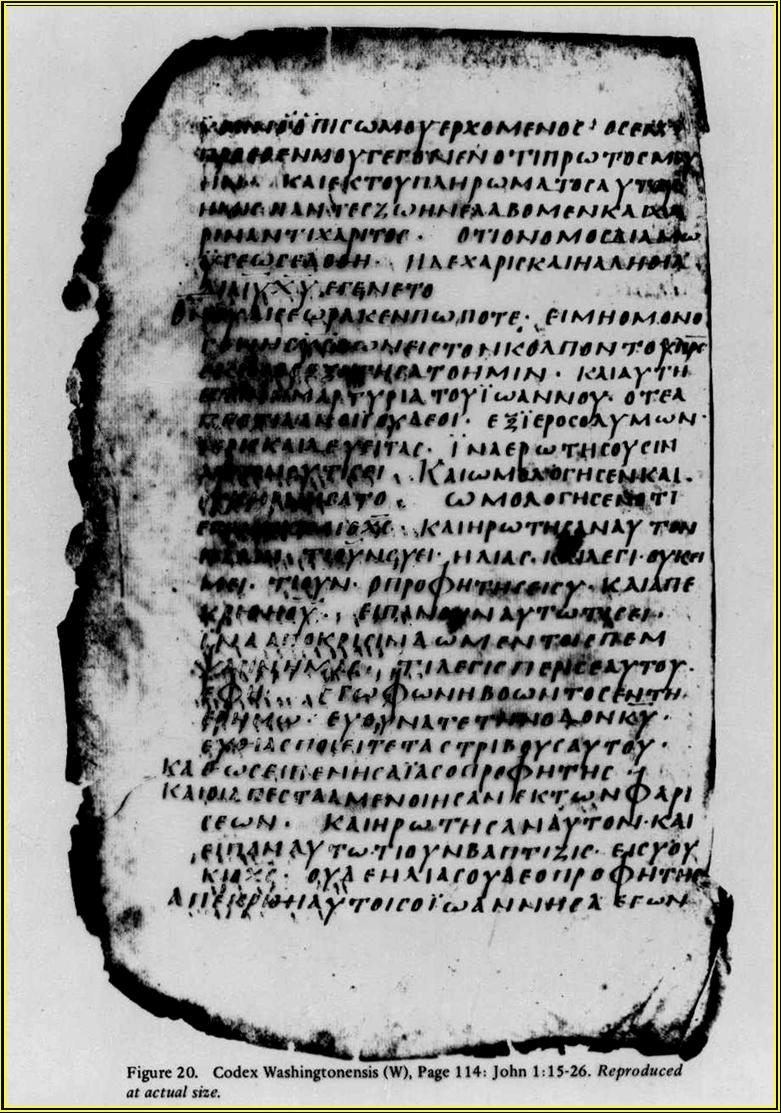 ΟΠΙCΩΜΟΥΕΡΧΟΜΕΝΟC
ΠΡΟCΘΕΝΜΟΥΓΕΓΟΝΕΝΟΤΙΠΡΩΤΟCΜΟΥ
ΗΝ· ΚΑΙΕΚΤΟΥΠΛΗΡΩΜΑΤΟCΑΥΤΟΥ
ΗΜΙC ΠΑΝΤΕCΖΩΗΝΕΛΑΒΟΜΕΝΚΑΙΧΑ
ΡΙΝΑΝΤΙΧΑΡΙΤΟC· ΟΤΙΟΝΟΜΟCΔΙΑΜΩ
ΫCΕΩCΕΔΟΘΗ· ΗΔΕΧΑΡΙCΚΑΙΗΑΛΗΘΙΑ
ΔΙΑΙΥΧΥΕΓΕΝΕΤΟ
ΘΝΟΥΔΙCΕΩΡΑΚΕΝΠΩΠΟΤΕ· ΕΙΜΗΟΜΟΝΟ
ΕΙCΤΟΝΚΟΛΠΟΝΤΟΥΠΡC
ΗΜΙΝ· ΚΑΙΑΥΤΗ
ΜΑΡΤΥΡΙΑΤΟΥΪΩΑΝΝΟΥ· ΟΤΕΑ
ΠΕCΤΙΛΑΝΟΙΪΟΥΔΕΟΙ· ΕΞΪΕΡΟCΟΛΥΜΩΝ·
ΪΕΡΙCΚΑΙΛΕΥΕΙΤΑC· ΪΝΑΕΡΩΤΗCΟΥCΙΝ
ΚΑΙΩΜΟΛΟΓΗCΕΝΚΑΙ·
ΩΜΟΛΟΓΗCΕΝΟΤΙ
ΟΧC· ΚΑΙΗΡΩΤΗCΑΝΑΥΤΟΝ
ΤΙΟΥΝCΥΕΙ· ΗΛΙΑC· ΚΑΙΛΕΓΙ·ΟΥΚΕΙ
ΜΕΙ· ΤΙΟΥΝ· ΟΠΡΟΦΗΤΗCΕΙCΥ· ΚΑΙΑΠΕ
ΚΡΙΘΗΟΥ· ΕΙΠΑΝΟΥΝΑΥΤΩΤΙCΕΙ·
ΪΝΑΑΠΟΚΡΙCΙΝΔΩΜΕΝΤΟΙCΠΕΜ
ΨΑCΙΝΗΜΑC· ΤΙΛΕΓΙCΠΕΡΙCΕΑΥΤΟΥ·
ΕΦΗ· ΕΓΩΦΩΝΗΒΟΩΝΤΟCΕΝΤΗ
ΕΡΗΜΩ· ΕΥΘΥΝΑΤΕΤΗΝΟΔΟΝΚΥ·
ΕΥΘΙΑCΠΟΙΕΙΤΕΤΑCΤΡΙΒΟΥCΑΥΤΟΥ·
ΚΑΘΩCΕΙΠΕΝΗCΑΪΑCΟΠΡΟΦΗΤΗC·
ΚΑΙΟΙΑΠΕCΤΑΛΜΕΝΟΙΗCΑΝΕΚΤΩΝΦΑΡΙ
CΕΩΝ· ΚΑΙΗΡΩΤΗCΑΝΑΥΤΟΝ·ΚΑΙ
ΕΙΠΑΝΑΥΤΩ·ΤΙΟΥΝΒΑΠΤΙΖΙC· ΕΙCΥΟΥ
ΚΙΟΧC· ΟΥΔΕΗΛΙΑCΟΥΔΕΟΠΡΟΦΗΤΗC
ΑΠΕΚΡΙΘΗΑΥΤΟΙCΟΪΩΑΝΝΗCΛΕΓΩΝ
Figure 20. Codex Washingtonensis (W), Page 114: John 1:15-26. Reproduced
at actual size.